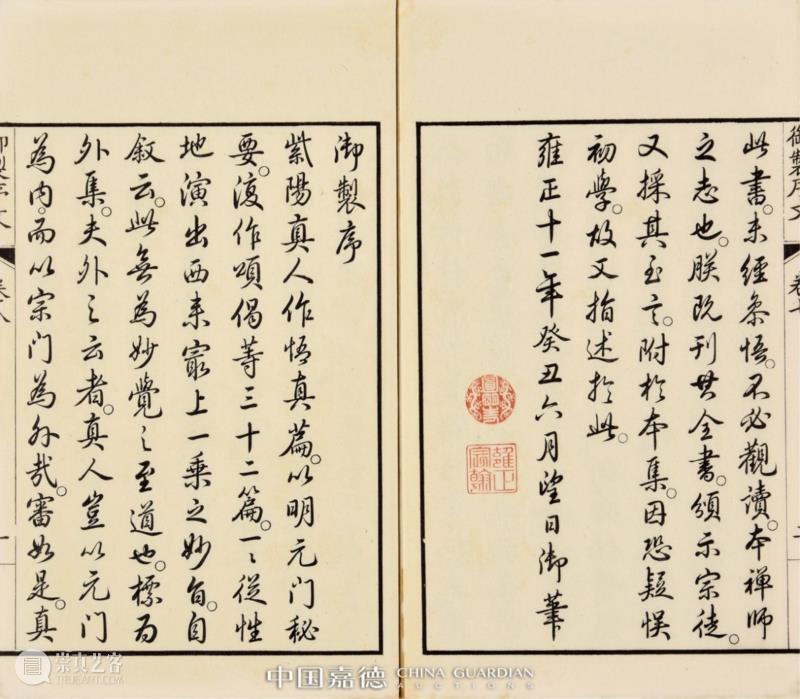 此書。未經參悟。不必觀讀。本禪師
之志也。朕既刊其全書。頒示宗徒。
又採其至言。附於本集。因恐疑悞
初學。故又指述於此。
雍正十一年癸丑六月望日御筆
圓明主人
雍正宸翰
御製序文
卷七
御製序
紫陽真人作悟真篇。以明元门秘
要。復作頌偈等三十二篇。一一從性
地演出西来最上一乗之妙旨。自
叙云。此無為妙覺之至道也。標為
外集。夫外之云者。真人豈以元门
為内。而以宗门為外哉。審如是。真
御製序文
卷八
一
崇真艺客
中国嘉德 CHINA GUARDIAN
AUCTIONS